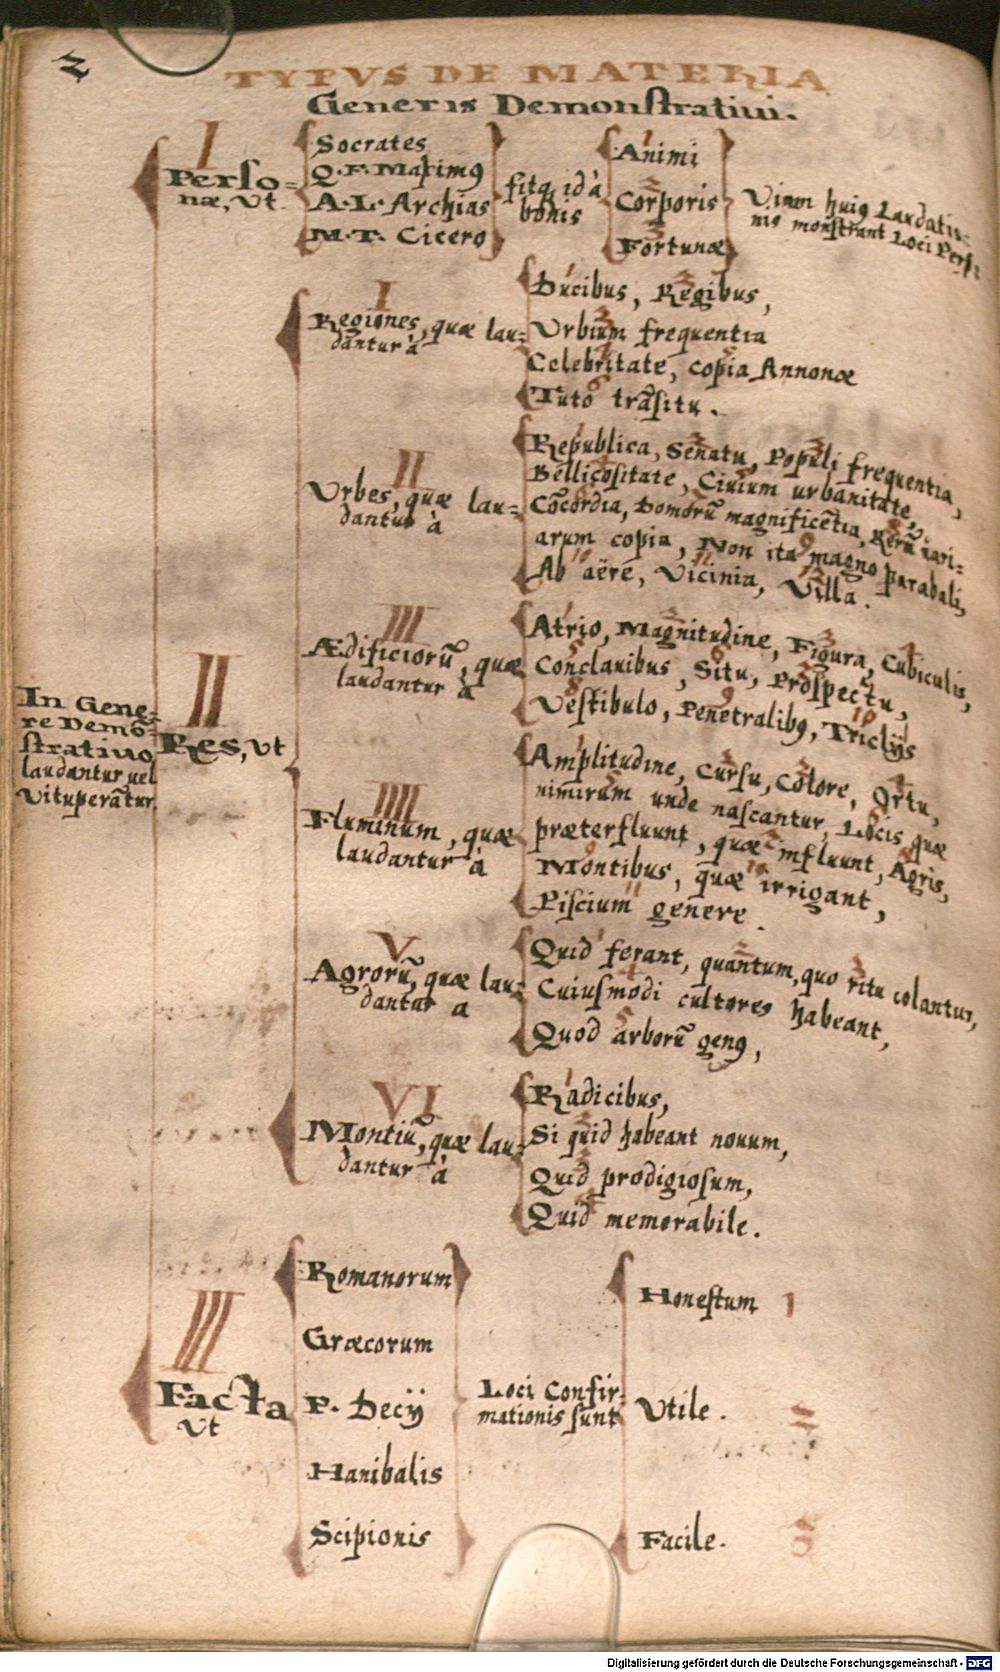 2
TYPVS DE MATERIA
Generis Demonſtratiui.
I
Perſo=
næ, Vt.
Socrates
Q. F. Maximꝰ
A. L. Archias
M. T. Cicero
fitq, id à
bonis
1
Animi
2
Corporis
3
Fortunæ
Vimm huiꝰ Laudatio=
nis monſtrant Loci Perſ
In Gene=
re Demō=
ſtratiuo
laudantur uel
Vituperātur.
II
Res, Vt
I
Regiones, quæ lau=
dantur à
Ducibus, Regibus,
Vrbium frequentia
Celebritate, copia Annonæ
Tuto trāſitu.
II
Vrbes, quæ lau=
dantur à
Republica, Senatu, Populi frequentia,
Bellicoſitate, Ciuium urbanitate,
Cōcordia, Domorū magnificētia, Rerū uari=
arum copia, Non ita magno parabali,
Ab aëre, Vicinia, Villa.
III
Ædificiorū, quæ
laudantur à
Atrio, Magnitudine, Figura, Cubiculis,
Conclauibus, Situ, Proſpectu,
Veſtibulo, Penetralibꝰ, Triclijs
IIII
Fluminum, quæ
laudantur à
Amplitudine, Curſu, Colore, Ortu,
nimirum unde naſcantur, Locis quæ
præterfluunt, quæ influunt, Agris,
Montibus, quæ irrigant,
Piſcium genere.
V
Agrorū, quæ lau=
dantur a
Quid ferant, quantum, quo ritu colantur,
Cuiuſmodi cultores habeant,
Quod arborū genꝰ,
VI
Montiū, quæ lau=
dantur à
Radicibus,
Si quid habeant nouum,
Quid prodigioſum,
Quid memorabile.
III
Facta
Vt
Romanorum
Græcorum
P. Decij
Hanibalis
Scipionis
Loci Confir=
mationis ſunt
Honeſtum 1
Vtile. 2
Facile. 3
Digitalisierung gefördert durch die Deutsche Forschungsgemeinschaft - DFG